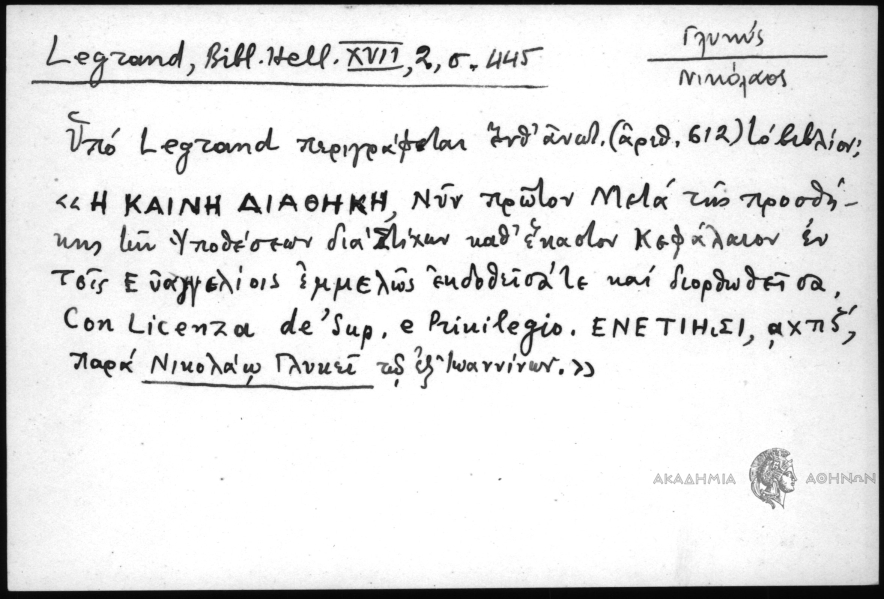 Legrand, Bibl. Hell. XVII, 2, σ. 445
Γλυκύς
Νικόλαος
Ὑπό Legrand περιγράφεται ἔνθ' ἀνωτ. (ἀριθ. 612) τό βιβλίον;
«Η ΚΑΙΝΗ ΔΙΑΘΗΚΗ, Νῦν πρῶτον Μετά τῆς προσθή-
κης τῶν Ὑποθέσεων διά Στίχων καθ' ἕκαστον Κεφάλαιον ἐν
τοῖς Εὐαγγελίοις ἐμμελῶς ἐκδοθεῖσά τε καί διορθωθεῖσα,
Con Licenza de' Sup. e Priuilegio. ΕΝΕΤΙΗ,ΣΙ, ͵αχπϛ́,
παρά Νικολάῳ Γλυκεῖ τῷ ἐξ Ἰωαννίνων.»
ΑΚΑΔΗΜΙΑ ΑΘΗΝΩΝ